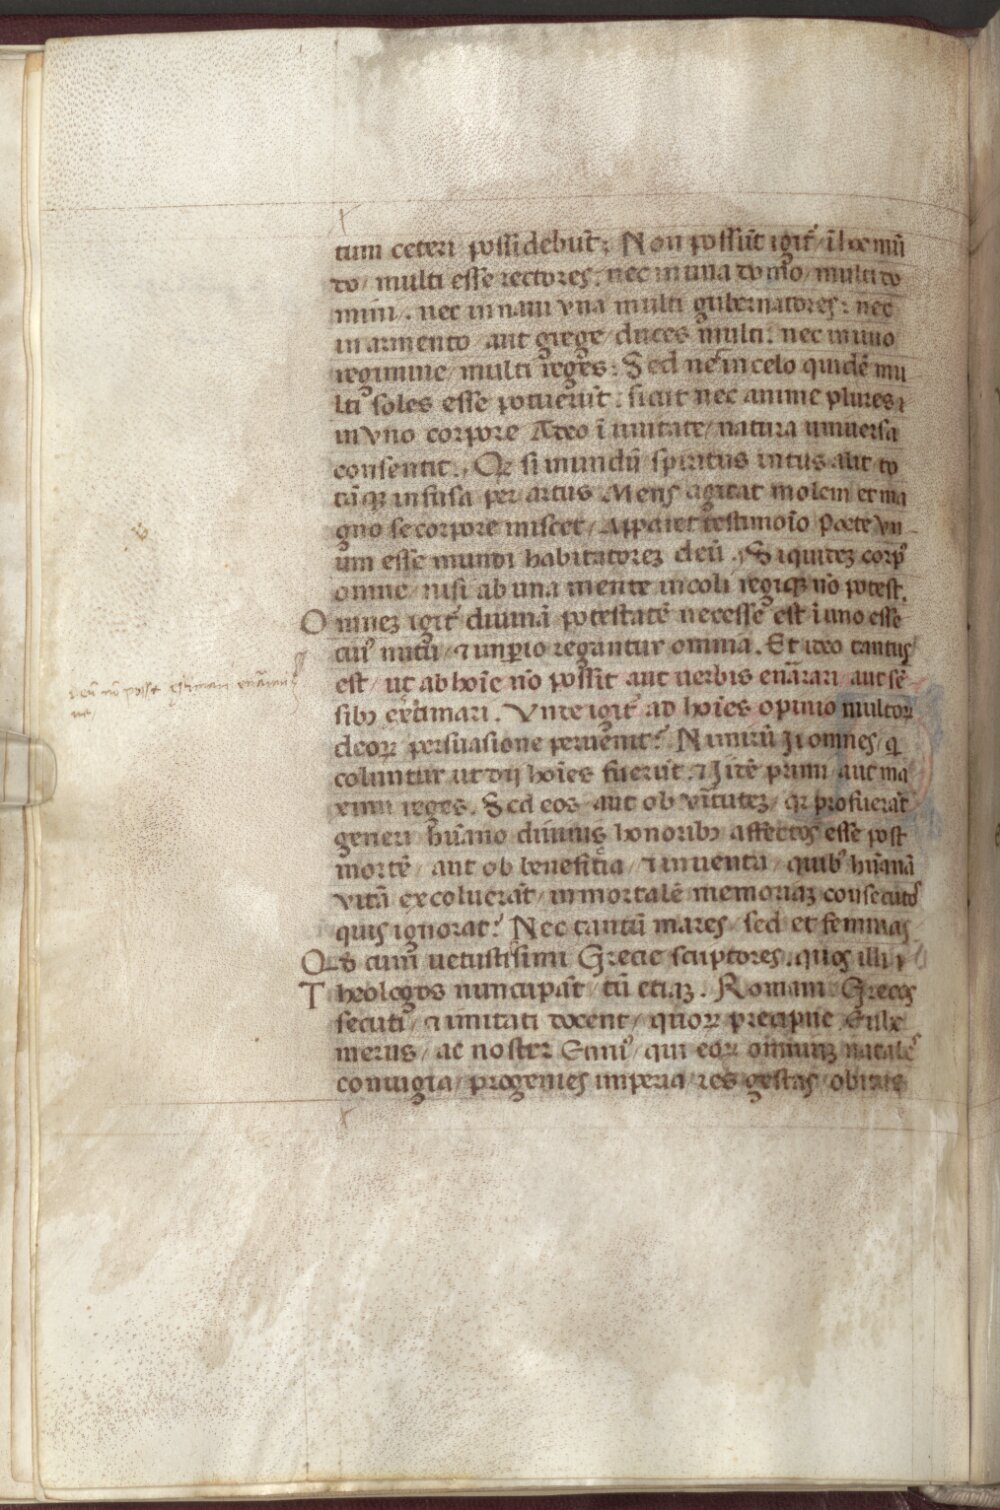 tum ceteri possidebūt: Non possūt igit᷑ / ī hoc mū
do / multi esse rectores: nec in una domo / multi do
mini . nec in naui vna multi gubernatores: nec
in armento aut grege / duces multi. nec in uno
regimine / multi reges: Sed nec in celo quidē mu
lti soles esse potuerūt : sicut nec anime plures
in vno corpore Adeo ī unitatē / natura uniuersa
consentit. Qꝛ si mundū spiritus intus alit to
tāqꝫ infusa per artus Mens agitat molem et ma
gno se corpore miscet / Apparet testimoīo Poete vn
um esse mundi habitatoreꝫ deū . Siquideꝫ corpꝰ
omne / nisi ab una mente incoli regiqꝫ nō potest.
Omneꝫ igit᷑ diuinā potestatē necesse est ī uno esse
cuiꝰ nutu / ⁊ imꝑio regantur omnia. Et ideo tantus
est / ut ab hoīe nō possit aut uerbis enārari aut sē
sibꝫ extimari. Vnde igit᷑ ad hoīes opinio multoꝝ
deoꝝ persuasione peruenit? Nimirū ij omnes / q
coluntur ut dij hoīes fuerūt . ⁊ Jitē primi aut ma
ximi reges. Sed eos aut ob virtuteꝫ / qꝛ profuerāt
generi hūano diuinis honoribꝫ affectos esse post
mortē / aut ob benefitia / ⁊ inuenta / quibꝰ hūanā
vitā excoluerāt / inmortalē memoriaꝫ consecutos
quis ignorat? Nec tantū mares / sed et feminas
Qd cum uetustissimi Grecie scriptores . quos illi
Theologos nuncupāt / tū etiaꝫ . Romani Grecos
secuti / ⁊ imitati docent / quoꝝ precipue Euhe
merus / ac noster Eniꝰ / qui eoꝝ omniuꝫ natalē
conuigia / progenies imperia / res gestas / obitus
deū nō posse extimari enārari
ue